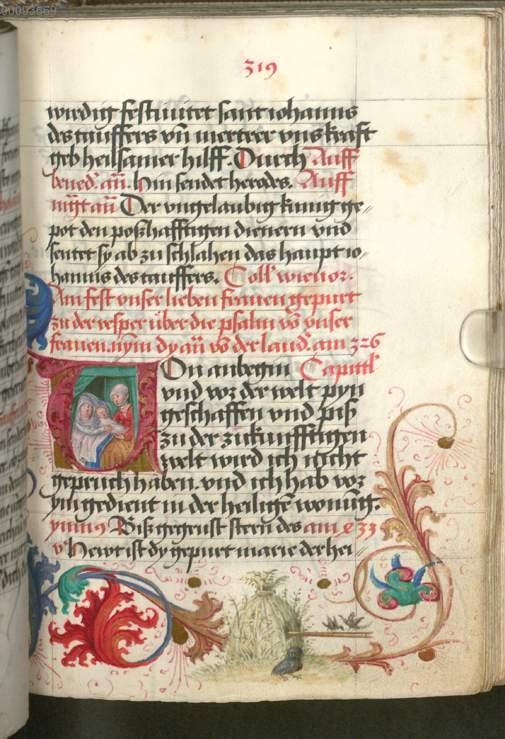 00093669
319
wirdig festinitet sant iohanns
des tauffers vnd mertrer vns krafft
geb heilsamer hilff. Durch Auff
bened. añ. Hin sendet herodes. Auff
Der vngelaubig kunig ge⸗
pot den poßhafftigen dienern vnd
sentet sy ab zu schlahen das haupt io⸗
hannis des tauffers. Coll̃ wie vor.
Am fest vnser lieben frauen gepurt
zu der vesper über die psalm vō vnser
frauen. nym dy añ vō der laud. am 326
Von anbegin Capittl̃
vnd vor der welt pyn
geschaffen vnd piß
zu der zukunfftigen
welt wird ich nicht
gepruch haben. vnd ich hab vor
ym gedient in der heiligē wonūg.
ymn9 Biß gegrust stern des am 233
v̾ Hewt ist dy gepurt marie der hei